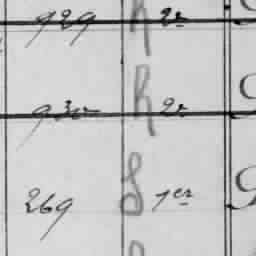 929 h 2e
930 h 2e
269 S 1er